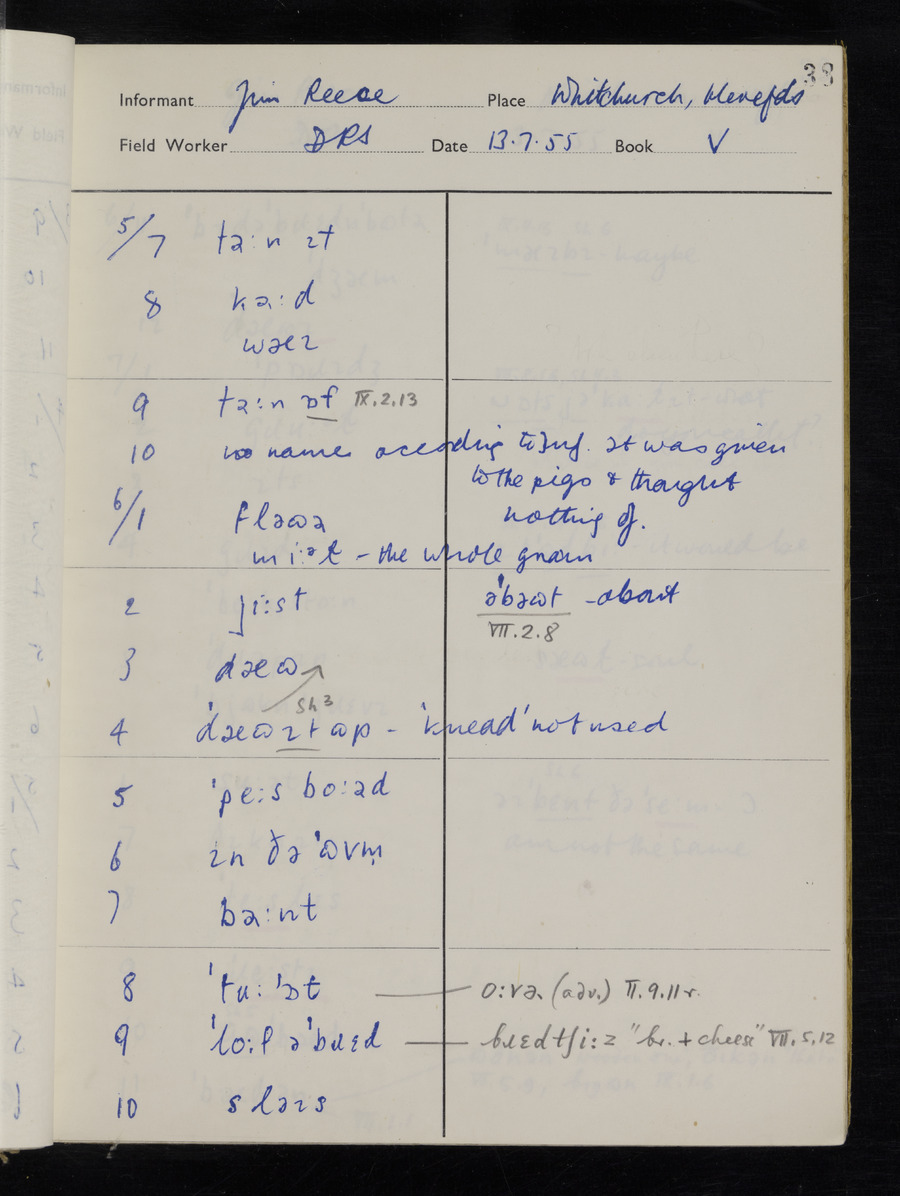 38
Informant Jim Reece Place Whitchurch, Herefds
Field Worker DRS Date 13.7.55 Book V
5/7 tə:n ɪt
8 kə:d
wəeɪ
9 tə:n ɒf IX.2.13
10 no name according to Inf. It was given
to the pigs & thought
nothing of.
6/1 flaʊə
mi:ət - the whole grain
2 ji:st əˈbəʊt - about
VII.2.8
3 dəʊ
Sh³
4 ˈdəʊ ɪt ʊp - 'knead' not used
5 ˈpe:s bo:əd
6 ɪn ðə ˈʊvm̩
7 bə:nt
8 ˈtu: ˈət o:və (adv.) II.9.11r.
9 ˈlo:f əˈbʁɛd bʁɛdtʃi:z "br. + cheese" VII.5.12
10 sləɪs